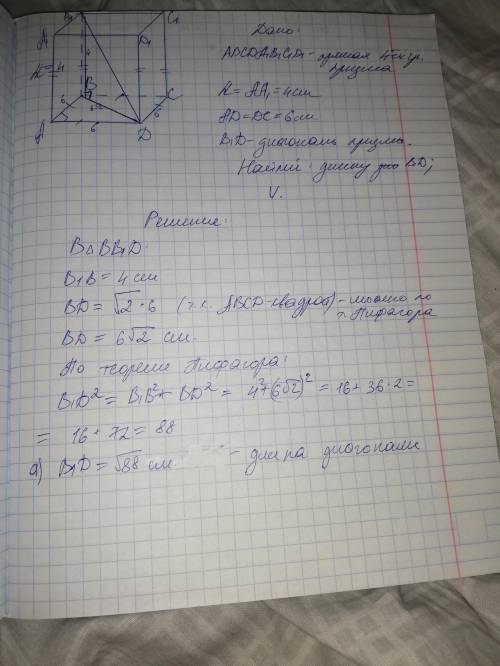 B₁ C₁
A₁ D₁
H=4 4
B C
6 6√2
A 6 D
Дано:
ABCDA₁B₁C₁D₁ - прямая 4-ёх уг. призма
H = AA₁ = 4 см
AD = DC = 6 см
B₁D - диагональ призмы.
Найти: длину B₁D;
V.
Решение:
В △ BB₁D:
B₁B = 4 см
BD = √2 · 6 (т.к. ABCD - квадрат) - можно по т. Пифагора
BD = 6√2 см.
По теореме Пифагора:
B₁D² = B₁B² + BD² = 4² + (6√2)² = 16 + 36 · 2 =
= 16 + 72 = 88
а) B₁D = √88 см. - длина диагонали